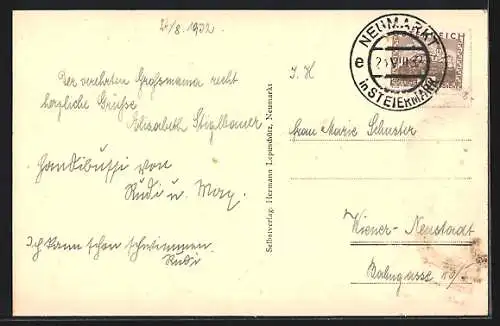 24/8. 1932
Der verehrten Großmama recht
herzliche Grüße
Elisabeth Stiglbauer
Handibussi von
Rudi u. May.
Ich kann schon schwimmen.
Rudi
Selbstverlag. Hermann Leputschütz, Neumarkt
NEUMARKT
e
in STEIERMARK
REICH
I. H
Frau Marie Schuster
Wiener-Neustadt
Bahngasse